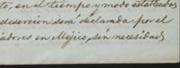 to, en el tiempo y modo establecidos
desercion será declarada por el
adores en Méjico, sin necesidad